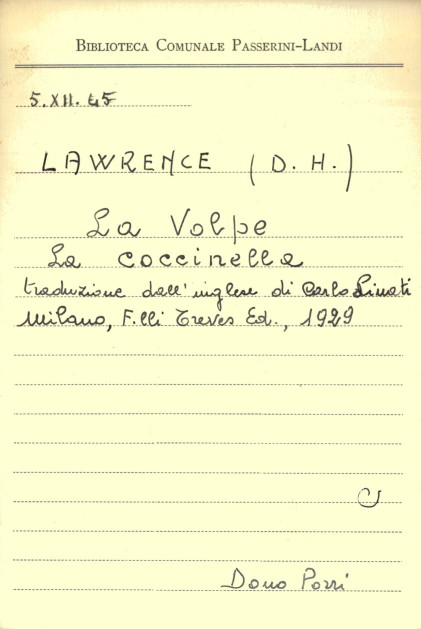 BIBLIOTECA COMUNALE PASSERINI-LANDI
5.XII.45
LAWRENCE (D. H.)
La Volpe
La coccinella
traduzione dall'inglese di Carlo Linati
Milano, F.lli Treves Ed., 1929
Dono